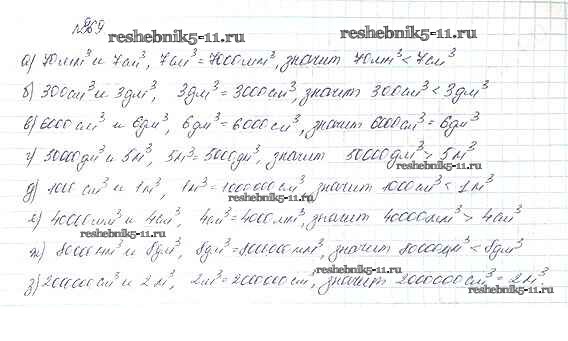 №869
reshebnik5-11.ru
reshebnik5-11.ru
а) 70мм³ и 7см³, 7см³ = 7000мм³, значит 70мм³ < 7см³
б) 300см³ и 3дм³, 3дм³ = 3000см³, значит 300см³ < 3дм³
в) 6000см³ и 6дм³, 6дм³ = 6000см³, значит 6000см³ = 6дм³
г) 50000дм³ и 5м³, 5м³ = 5000дм³, значит 50000дм³ > 5м³
reshebnik5-11.ru
д) 1000см³ и 1м³, 1м³ = 1000000см³, значит 1000см³ < 1м³
reshebnik5-11.ru
е) 40000мм³ и 4см³, 4см³ = 4000мм³, значит 40000мм³ > 4см³
reshebnik5-11.ru
ж) 80000мм³ и 8дм³, 8дм³ = 8000000мм³, значит 80000мм³ < 8дм³
reshebnik5-11.ru
з) 2000000см³ и 2м³, 2м³ = 2000000см, значит 2000000см³ = 2м³.
reshebnik5-11.ru